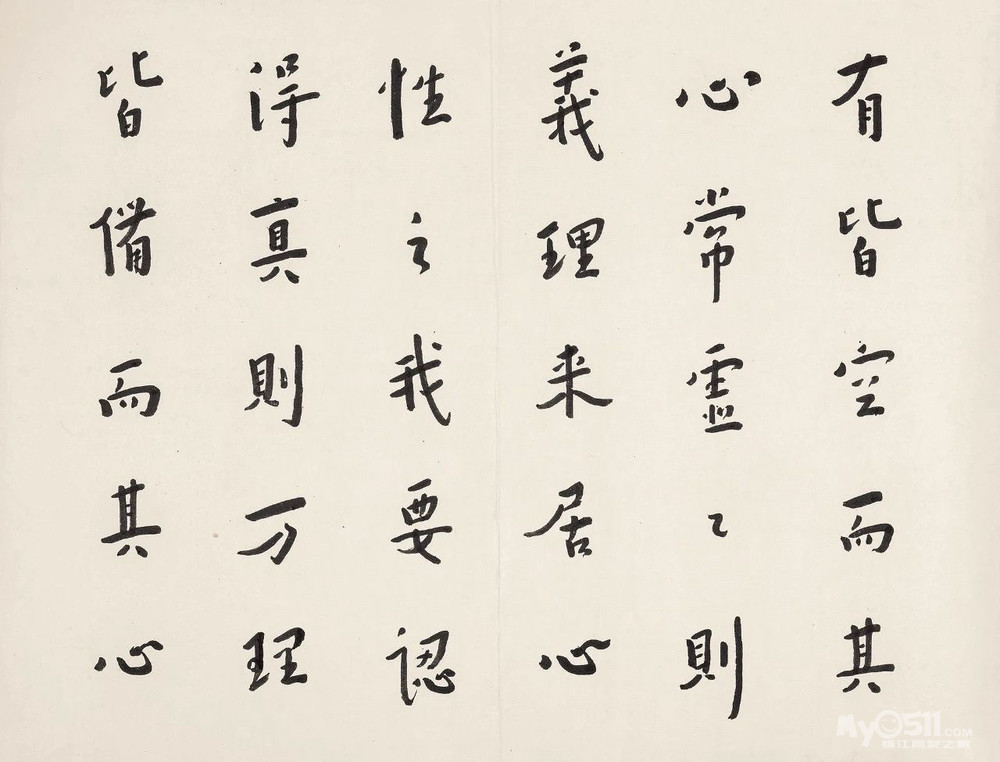 有皆空而其
心常霊〻則
義理来居心
性之我要認
得真則万理
皆備而其心
My0511.COM